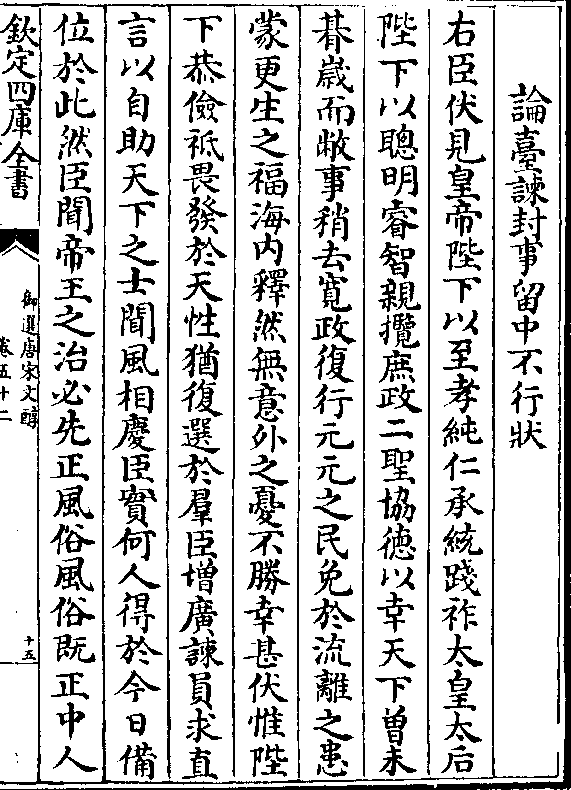 論臺諫封事留中不行狀
右臣伏見皇帝陛下以至孝純仁承統踐祚太皇太后
陛下以聰明睿智親攬庶政二聖協德以幸天下曾未
朞歲而敝事稍去寛政復行元元之民免於流離之患
蒙更生之福海内釋然無意外之憂不勝幸甚伏惟陛
下恭儉祗畏發於天性猶復選於羣臣增廣諫員求直
言以自助天下之士聞風相慶臣實何人得於今日備
位於此然臣聞帝王之治必先正風俗風俗既正中人
欽定四庫全書
御選唐宋文醇
卷五十二
十五